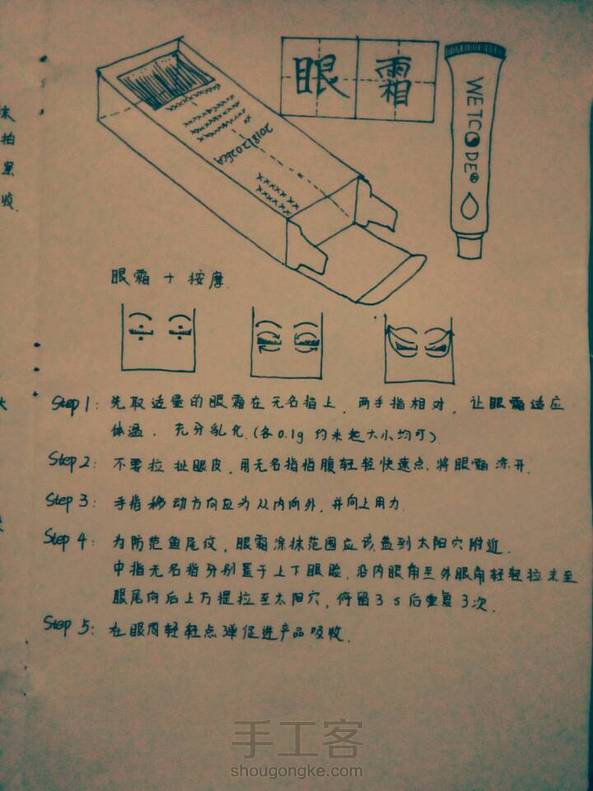 眼霜
WETCODE®
20181202GA
眼霜 + 按摩
Step 1: 先取适量的眼霜在无名指上,两手指相对,让眼霜适应
体温,充分乳化.(各0.1g 约米粒大小均可)
Step 2: 不要拉扯眼皮,用无名指指腹轻轻快速点,将眼霜涂开.
Step 3: 手指移动方向应为从内向外,并向上用力.
Step 4: 为防范鱼尾纹,眼霜涂抹范围应该盖到太阳穴附近.
中指无名指分别置于上下眼睑,沿内眼角至外眼角轻轻拉末至
眼尾向后上方提拉至太阳穴,停留3s后重复3次.
Step 5: 在眼周轻轻点弹促进产品吸收.
手工客
shougongke.com